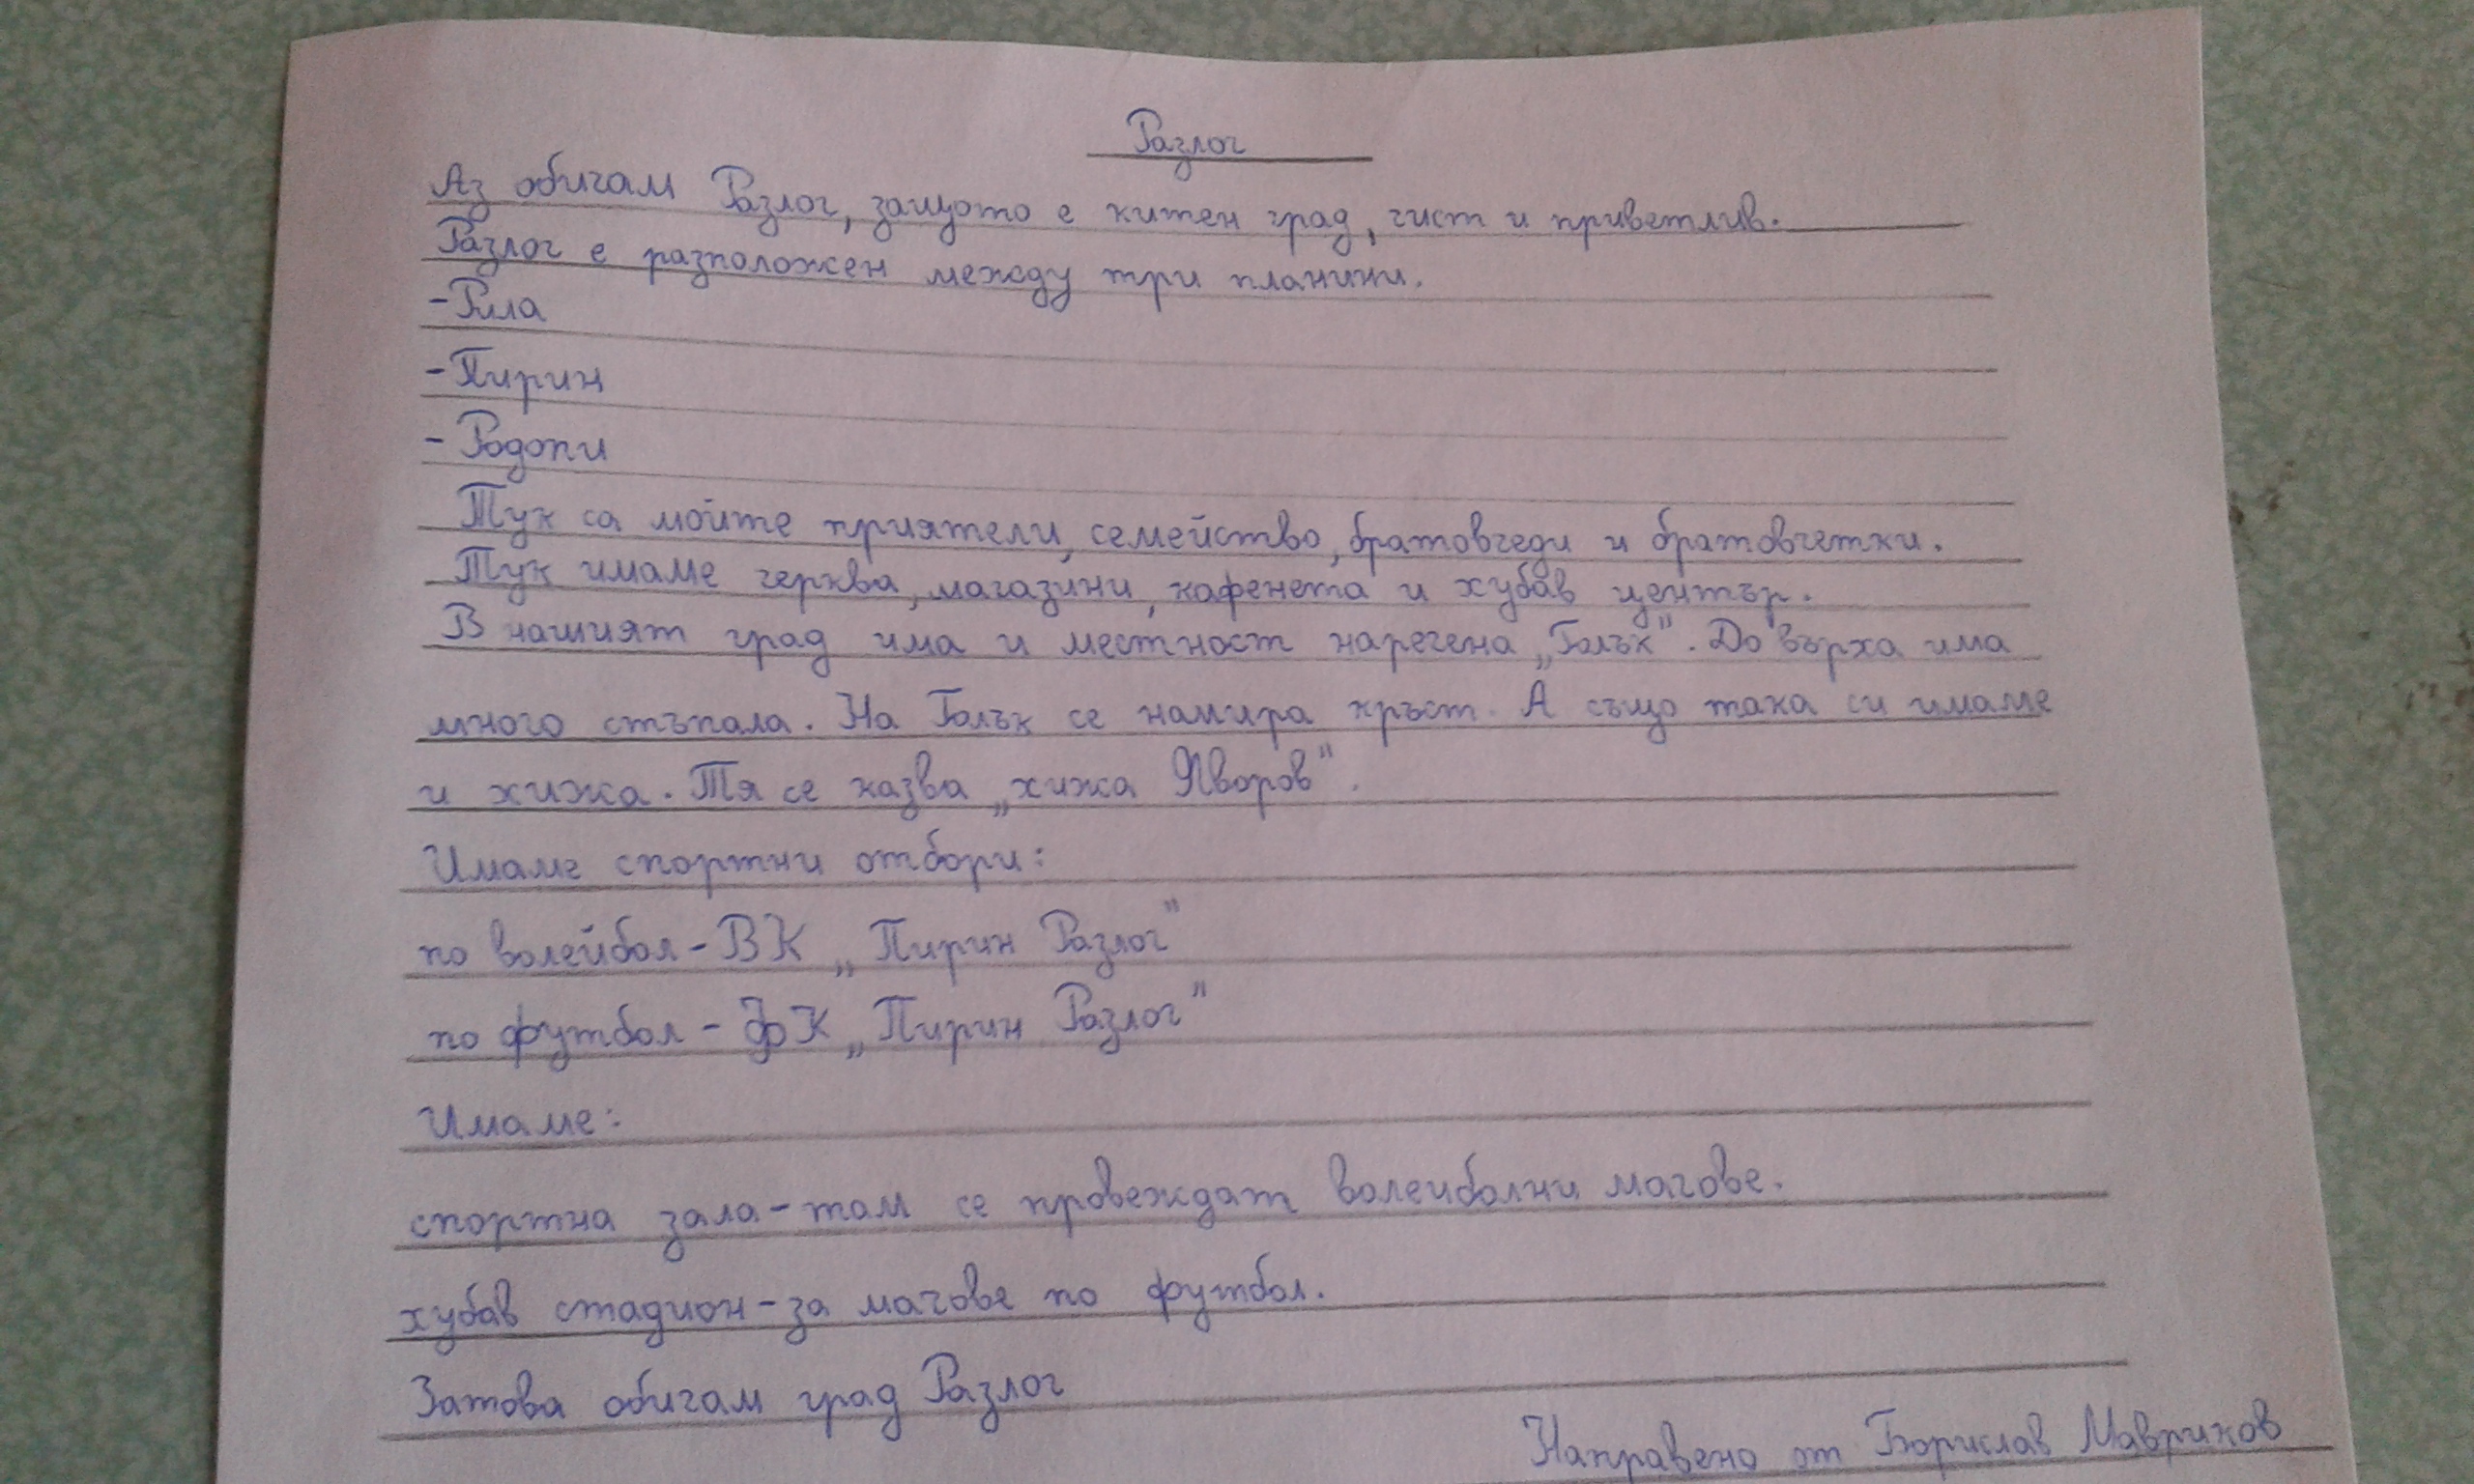 Разлог
Аз обичам Разлог, защото е китен град, чист и приветлив.
Разлог е разположен между три планини.
-Рила
-Пирин
-Родопи
Тук са мойте приятели, семейство, братовчеди и братовчетки.
Тук имаме черква, магазини, кафенета и хубав център.
В нашият град има и местност наречена „Голък". До върха има
много стъпала. На Голък се намира кръст. А също така си имаме
и хижа. Тя се казва „хижа Яворов".
Имаме спортни отбори:
по волейбол - ВК „Пирин Разлог"
по футбол - ФК „Пирин Разлог"
Имаме:
спортна зала - там се провеждат волеиболни мачове.
хубав стадион - за мачове по футбол.
Затова обичам град Разлог
Направено от Борислав Мавриков